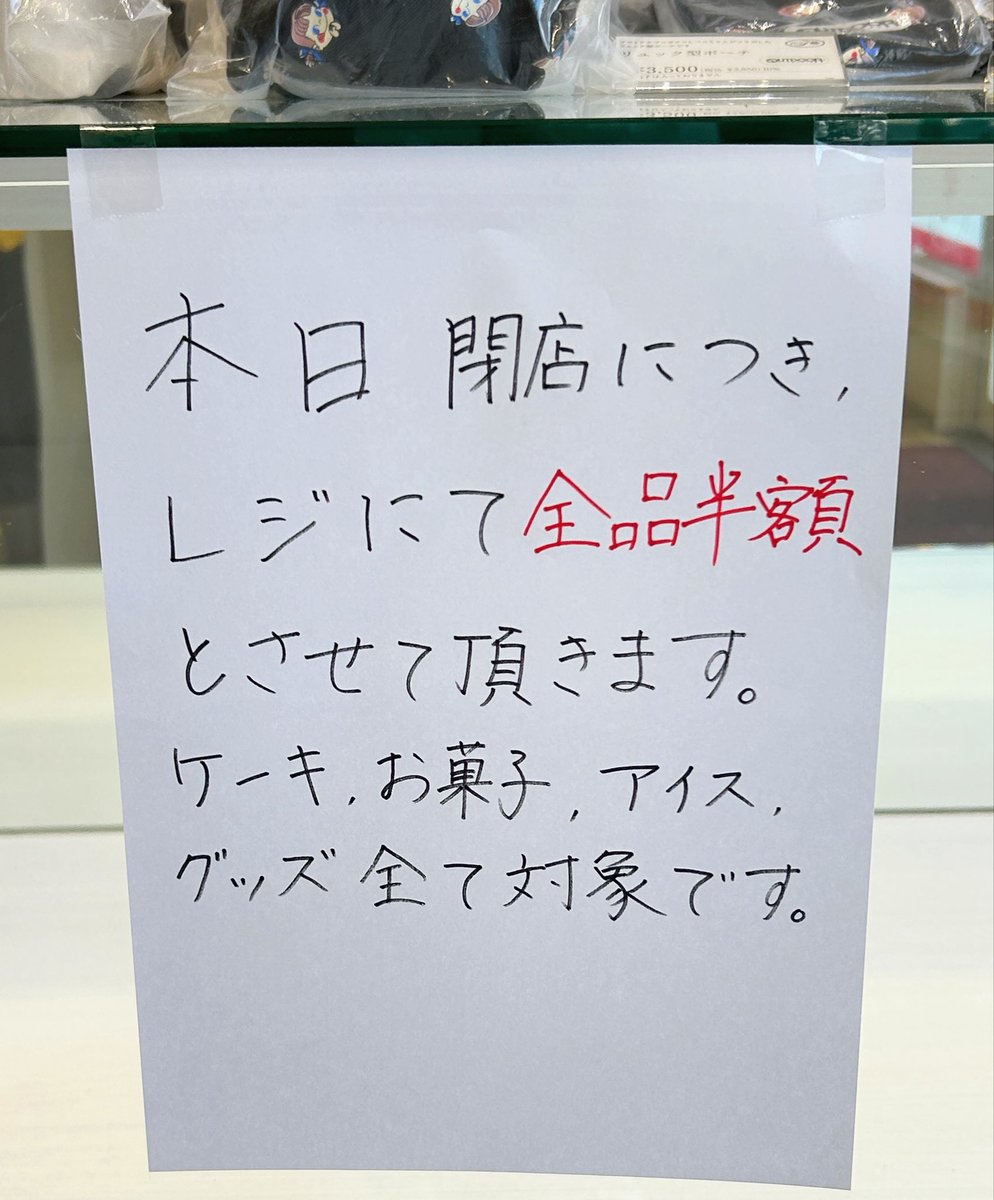 リュック型ポーチ
¥3,500
本日 閉店につき,
レジにて全品半額
とさせて頂きます。
ケーキ,お菓子,アイス,
グッズ 全て対象です。